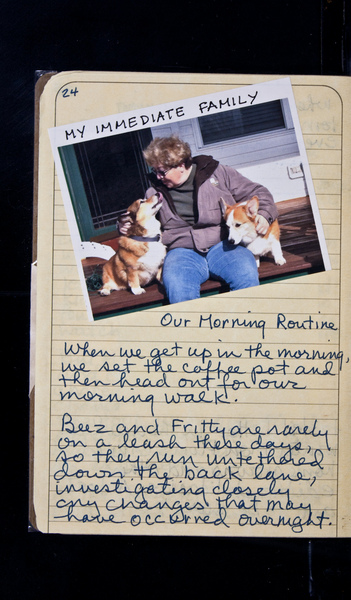 24
MY IMMEDIATE FAMILY
Our Morning Routine
When we get up in the morning,
we set the coffee pot and
then head out for our
morning walk.
Beez and Fritty are rarely
on a leash these days,
so they run untethered
down the back lane,
investigating closely
any changes that may
have occurred overnight.